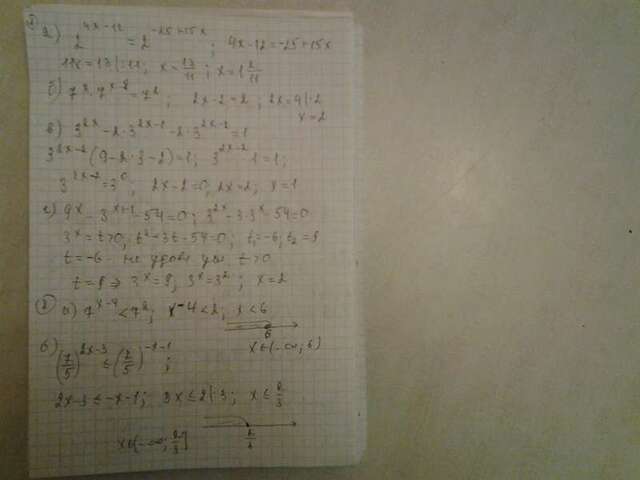 1
а) 2^(4x-12) = 2^(-25+15x) ; 4x-12=-25+15x
11x=13 |:11; x=13/11; x=1 2/11
б) 7^x·7^(x-2)=7^2; 2x-2=2; 2x=4|:2
x=2
в) 3^(2x)-2·3^(2x-1)-2·3^(2x-2)=1
3^(2x-2)(9-2·3-2)=1; 3^(2x-2)·1=1;
3^(2x-2)=3^0; 2x-2=0, 2x=2; x=1
г) 9^x-3^(x+1)-54=0; 3^(2x)-3·3^x-54=0
3^x=t>0; t^2-3t-54=0; t₁=-6; t₂=9
t=-6 - не удовл усл t>0
t=9 ⇒ 3^x=9; 3^x=3^2; x=2
2 а) 7^(x-4)<7^2; x-4<2; x<6
6
x∈(-∞; 6)
б) (7/5)^(2x-3) ≤ (7/5)^(-x-1) ;
2x-3≤-x-1; 3x≤2|:3; x≤2/3
x∈(-∞; 2/3]